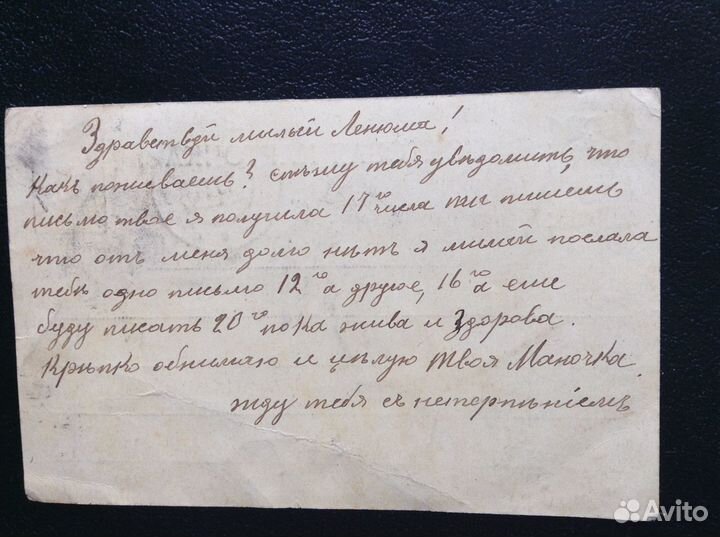 Здравствуй милый Ленюша!
Какъ поживаешь? спѣшу тебя увѣдомить, что
письмо твое я получила 17го числа ты пишешь
что отъ меня долго нѣтъ я милый послала
тебѣ одно письмо 12го а другое, 16го а еще
буду писать 20го пока жива и здорова.
Крѣпко обнимаю и цѣлую твоя Маночка.
жду тебя съ нетерпѣніемъ
Avito